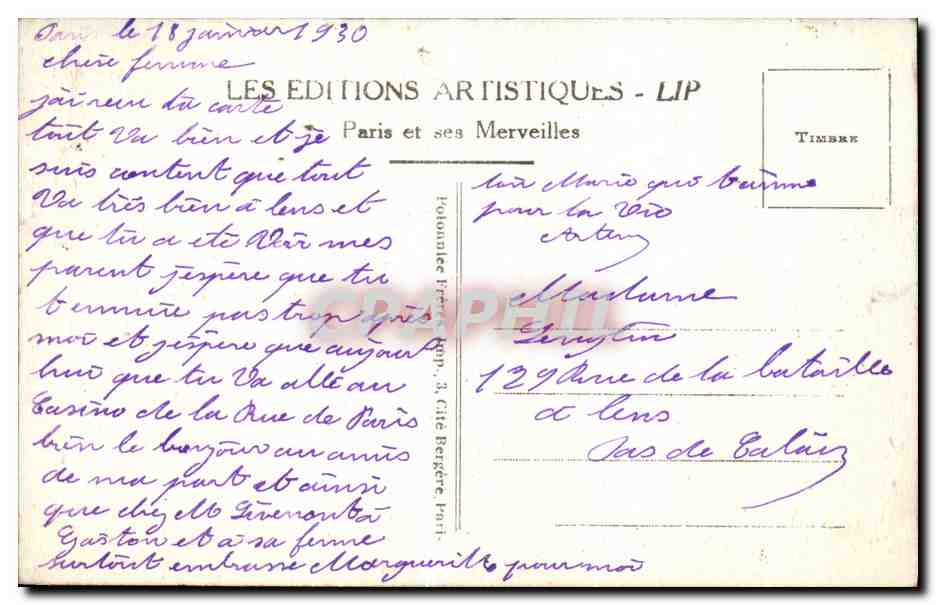 Paris le 18 janvier 1930
chere femme
LES EDITIONS ARTISTIQUES - LIP
Paris et ses Merveilles
TIMBRE
jai reçu ta carte
tout va bien et je
suis content que tout
Va très bien a lens et
que tu a eté Voir mes
parent jespère que tu
tennuie pas trop après
moi et jespère que aujour
hui que tu Va allé au
Casino de la Rue de Paris
bien le bonjour au amis
de ma part et ainsi
que chez M à
Gaston et à sa feme
surtout embrasse Marguerite pour moi
Polonniee Frères, Imp., 3, Cité Bergère, Pari-
ton Mario qui taime
pour la Vie
Madame
129 Rue de la bataille
a lens
Pas de Calais
CPAPHIL